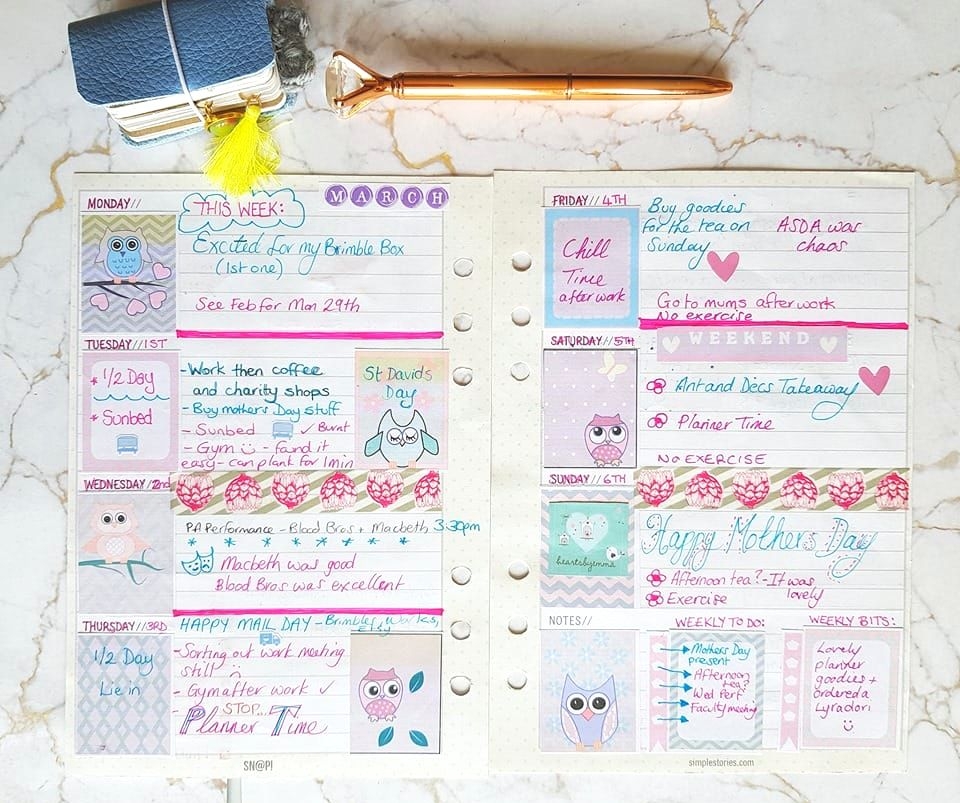 MARCH
MONDAY//
THIS WEEK:
Excited for my Brimble Box
(1st one)
See Feb for Mon 29th
TUESDAY//1ST
* 1/2 Day
* Sunbed
- Work then coffee
and charity shops
- Buy mothers Day stuff
- Sunbed ✓ Burnt
- Gym - found it
easy - can plank for 1min
St Davids
Day
WEDNESDAY//2nd
PA Performance - Blood Bros + Macbeth 3:30pm
Macbeth was good
Blood Bros was excellent
THURSDAY//3RD
1/2 Day
Lie in
HAPPY MAIL DAY - Brimbles, Works,
Etsy
- Sorting out work meeting
still
- Gym after work ✓
- STOP...
Planner Time
SN@P!
FRIDAY//4TH
Chill
Time
after work
Buy goodies
for the tea on
Sunday
ASDA was
chaos
Go to mums after work
No exercise
SATURDAY//5TH
WEEKEND
Ant and Decs Takeaway
Planner Time
NO EXERCISE
SUNDAY//6TH
heartsbyemma
Happy Mothers Day
Afternoon tea? - It was
lovely
Exercise
NOTES//
WEEKLY TO DO:
Mothers Day
present
Afternoon
tea?
Wed Perf
Faculty meeting
WEEKLY BITS:
Lovely
planner
goodies +
ordered a
Lyradori
simplestories.com